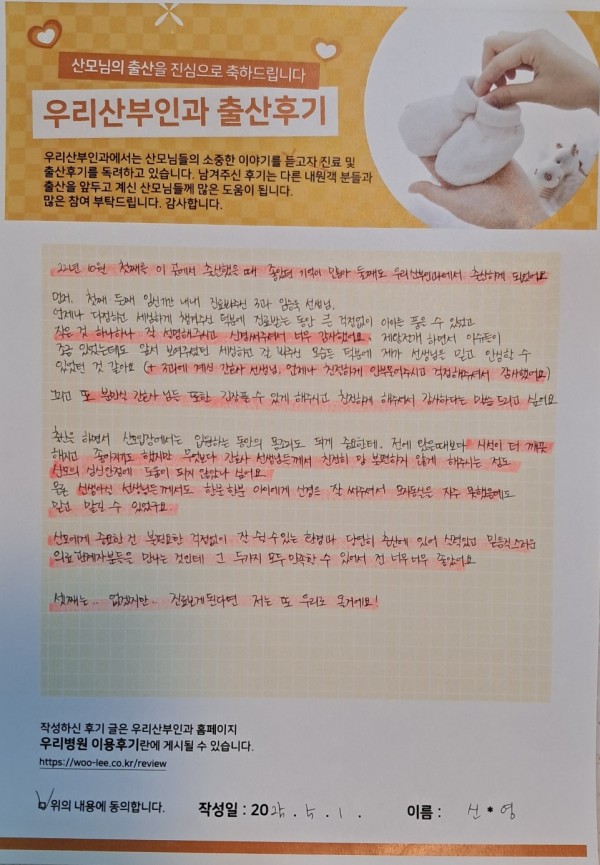 산모님의 출산을 진심으로 축하드립니다
우리산부인과 출산후기
우리산부인과에서는 산모님들의 소중한 이야기를 듣고자 진료 및
출산후기를 독려하고 있습니다. 남겨주신 후기는 다른 내원객 분들과
출산을 앞두고 계신 산모님들께 많은 도움이 됩니다.
많은 참여 부탁드립니다. 감사합니다.
22년 10월 첫째를 이 곳에서 출산했을 때 좋았던 기억이 있어 둘째도 우리산부인과에서 출산하게 되었어요
먼저, 첫째 둘째 임신기간 내내 진료봐주신 3과 원장님.
언제나 다정하고 세심하게 챙겨주신 덕분에 진료받는 동안 큰 걱정없이 아이를 품을 수 있었고
작은 것 하나하나 잘 설명해주시고 신경써주셔서 너무 감사했어요. 제왕절개 하면서 이슈들이
조금 있었는데도 앞서 보여주셨던 세심하고 잘 봐주신 모습들 덕분에 제가 선생님을 믿고 안심할 수
있었던 것 같아요 (+ 3과에 계신 간호사 선생님, 언제나 친절하게 안부물어주시고 걱정해주셔서 감사했어요)
그리고 또 분만실 간호사 님들 또한 긴장풀 수 있게 해주시고 친절하게 해주셔서 감사하다는 말씀 드리고 싶어요
출산을 하면서 산모입장에서는 입원하는 동안의 몸조리도 되게 중요한데, 전에 왔을때보다 시설이 더 깨끗
해지고 좋아져도 했지만 무엇보다 간호사 선생님들께서 친절히 맘 불편하지 않게 해주시는 점도
산모의 심신안정에 도움이 되지 않았나 싶어요.
물론 신생아실 선생님들께서도 한분한분 아이에게 신경을 잘 써주셔서 모자동실은 자주 못했음에도
믿고 맡길 수 있었구요
산모에게 중요한 건 불필요한 걱정없이 잘 쉴 수 있는 환경과 당연히 출산에 있어 실력있고 믿음직스러운
의료 관계자분들을 만나는 것인데 그 두가지 모두 만족할 수 있어서 전 너무너무 좋았어요
셋째는.. 없겠지만.. 진료보게된다면 저는 또 우리로 올거에요!
작성하신 후기 글은 우리산부인과 홈페이지
우리병원 이용후기란에 게시될 수 있습니다.
https://woo-lee.co.kr/review
위의 내용에 동의합니다. 작성일 : 2025. 5. 1. 이름 : 신*영